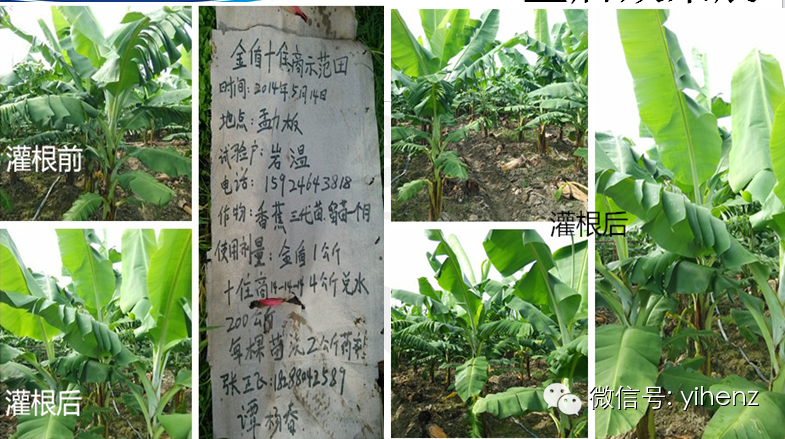 灌根前
灌根后
金盾十住商示范田
时间:2014年5月14日
地点:勐板
试验户:岩温
电话:15924643818
作物:香蕉 三代苗.留苗一个月
使用剂量:金盾1公斤
十住商14-14-14 4公斤兑水
200公斤
每棵苗浇2公斤药剂
张正飞:18288042589
灌根后
微信号: yihenz